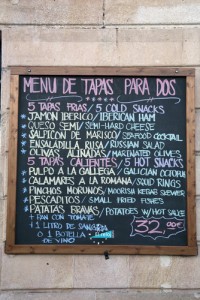 MENU DE TAPAS PARA DOS
5 TAPAS FRIAS / 5 COLD SNACKS
*JAMON IBERICO / IBERICAN HAM
*QUESO SEMI / SEMI-HARD CHEESE
*SALPICON DE MARISCO / SEAFOOD COCKTAIL
*ENSALADILLA RUSA / RUSSIAN SALAD
*OLIVAS ALIÑADAS / MARINATED OLIVES
5 TAPAS CALIENTES / 5 HOT SNACKS
*PULPO A LA GALLEGA / GALICIAN OCTOPUS
*CALAMARES A LA ROMANA / SQUID RINGS
*PINCHOS MORUNOS / MOORISH KEBAB SKEWER
*PESCADITOS / SMALL FRIED FISHES
*PATATAS BRAVAS / POTATOES W/ HOT SAUCE
+ PAN CON TOMATE
+ 1 LITRO DE SANGRIA
O 1 BOTELLA
DE VINO
32,00€